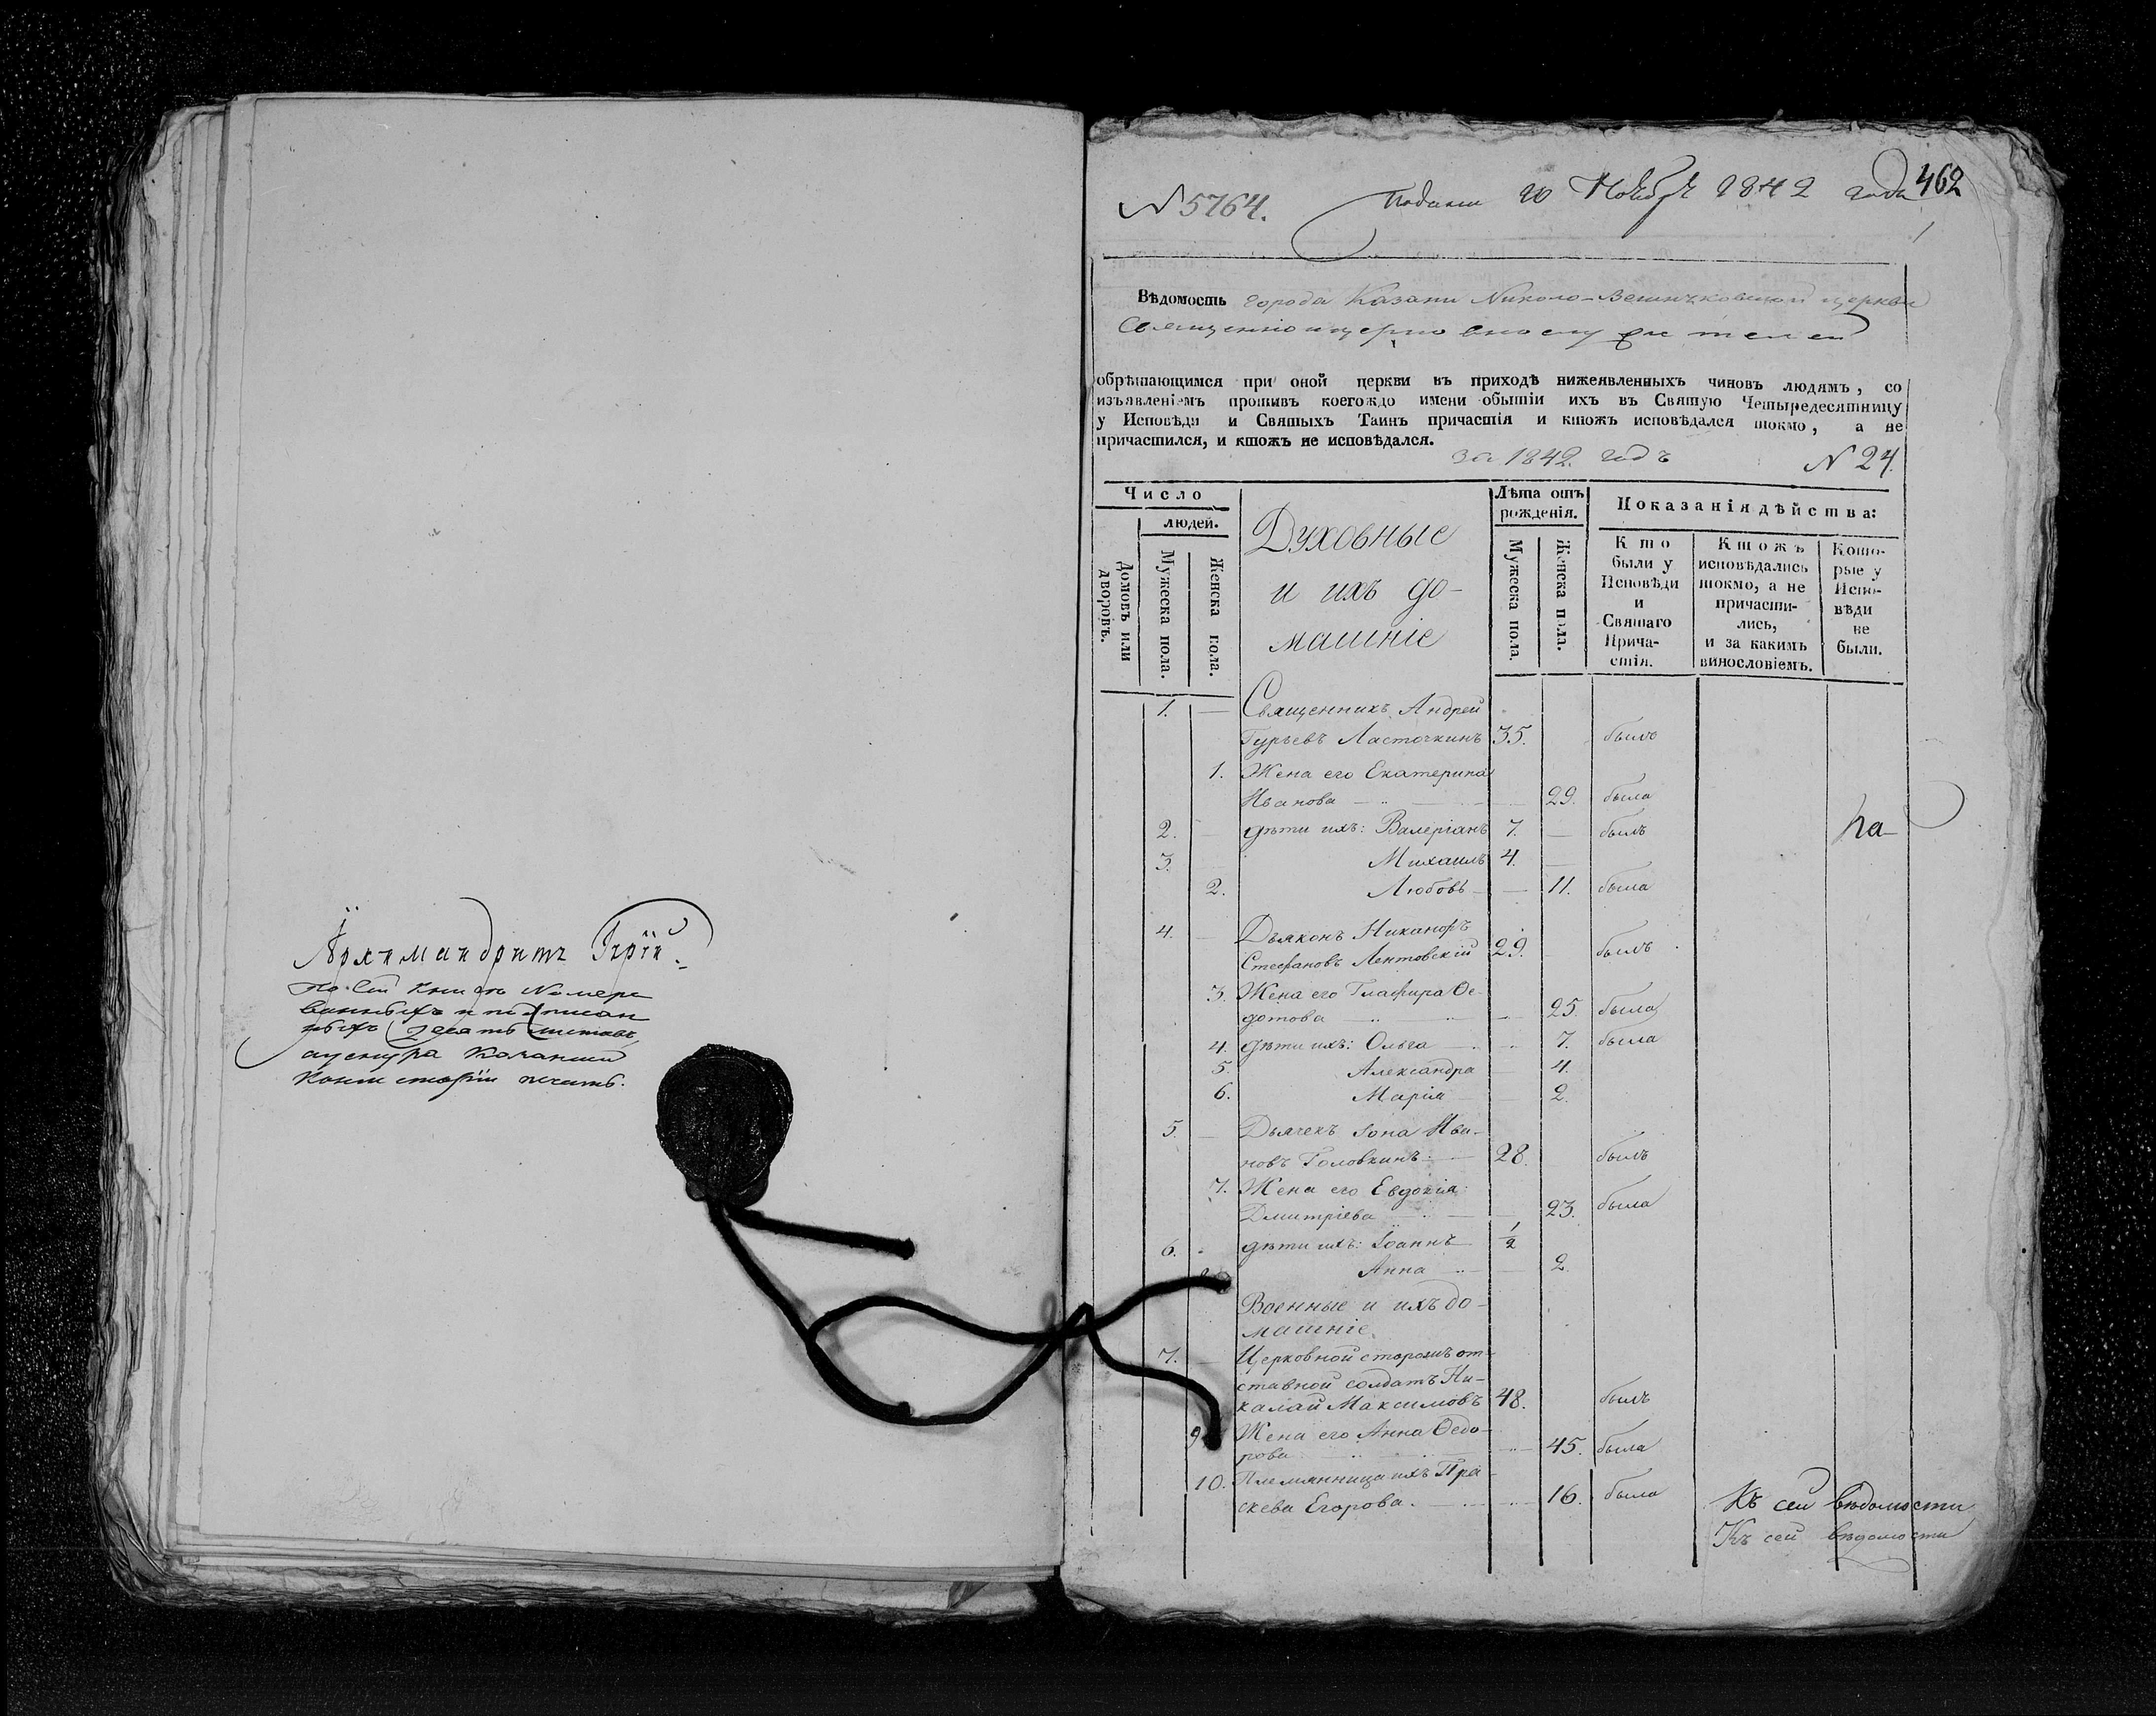 Архимандритъ
по сей книгѣ Номеро
ванныхъ и
ныхъ десять листовъ
Казанской
Консисторіи печать.
N 5764.
Подана 20 Ноября 1842 года
462
Вѣдомость города Казани Николо-Вешняковской церкви
Священноцерковнослужителей
обрѣтающимся при оной церкви въ приходѣ нижеявленныхъ чиновъ людямъ, со
изъявленіемъ противъ коегождо имени обытіи ихъ въ Святую Четыредесятницу
у Исповѣди и Святыхъ Таинъ причастія и ктожъ исповѣдался токмо, а не
причастился, и ктожъ не исповѣдался.
за 1842. годъ
N 24.
Число
людей.
Домовъ или дворовъ.
Мужеска пола.
Женска пола.
Духовные
и ихъ до-
машніе
Лѣта отъ
рожденія.
Мужеска пола.
Женска пола.
Показанія дѣйства:
Кто
были у
Исповѣди
и
Святаго
Прича-
стія.
Ктожъ
исповѣдались
токмо, а не
причасти-
лись,
и за какимъ
винословіемъ.
Кото-
рые у
Испо-
вѣди
не
были.
1. Священникъ Андрей
Гурьевъ Ласточкинъ 35. былъ
1. Жена его Екатерина
Иванова 29. была
2. дѣти ихъ: Валеріанъ 7. былъ
3. Михаилъ 4.
2. Любовь 11. была
4. Дьяконъ Никаноръ
Стефановъ Лентовскій 29. былъ
3. Жена его Глафира Ѳе-
дотова 25. была
4. дѣти ихъ: Ольга 7. была
5. Александра 4.
6. Марія 2.
5. Дьячекъ Іона Ива-
новъ Головкинъ 28. былъ
7. Жена его Евдокія
Дмитріева 23. была
6. дѣти ихъ: Іоаннъ 1/2
Анна 2.
Военные и ихъ до-
машніе.
7. Церковной сторожъ от-
ставной солдатъ Ни-
калай Максимовъ 48. былъ
9. Жена его Анна Ѳедо-
рова 45. была
10. Племянница ихъ Пра-
скева Егорова. 16. была
Къ сей вѣдомости
Къ сей вѣдомости